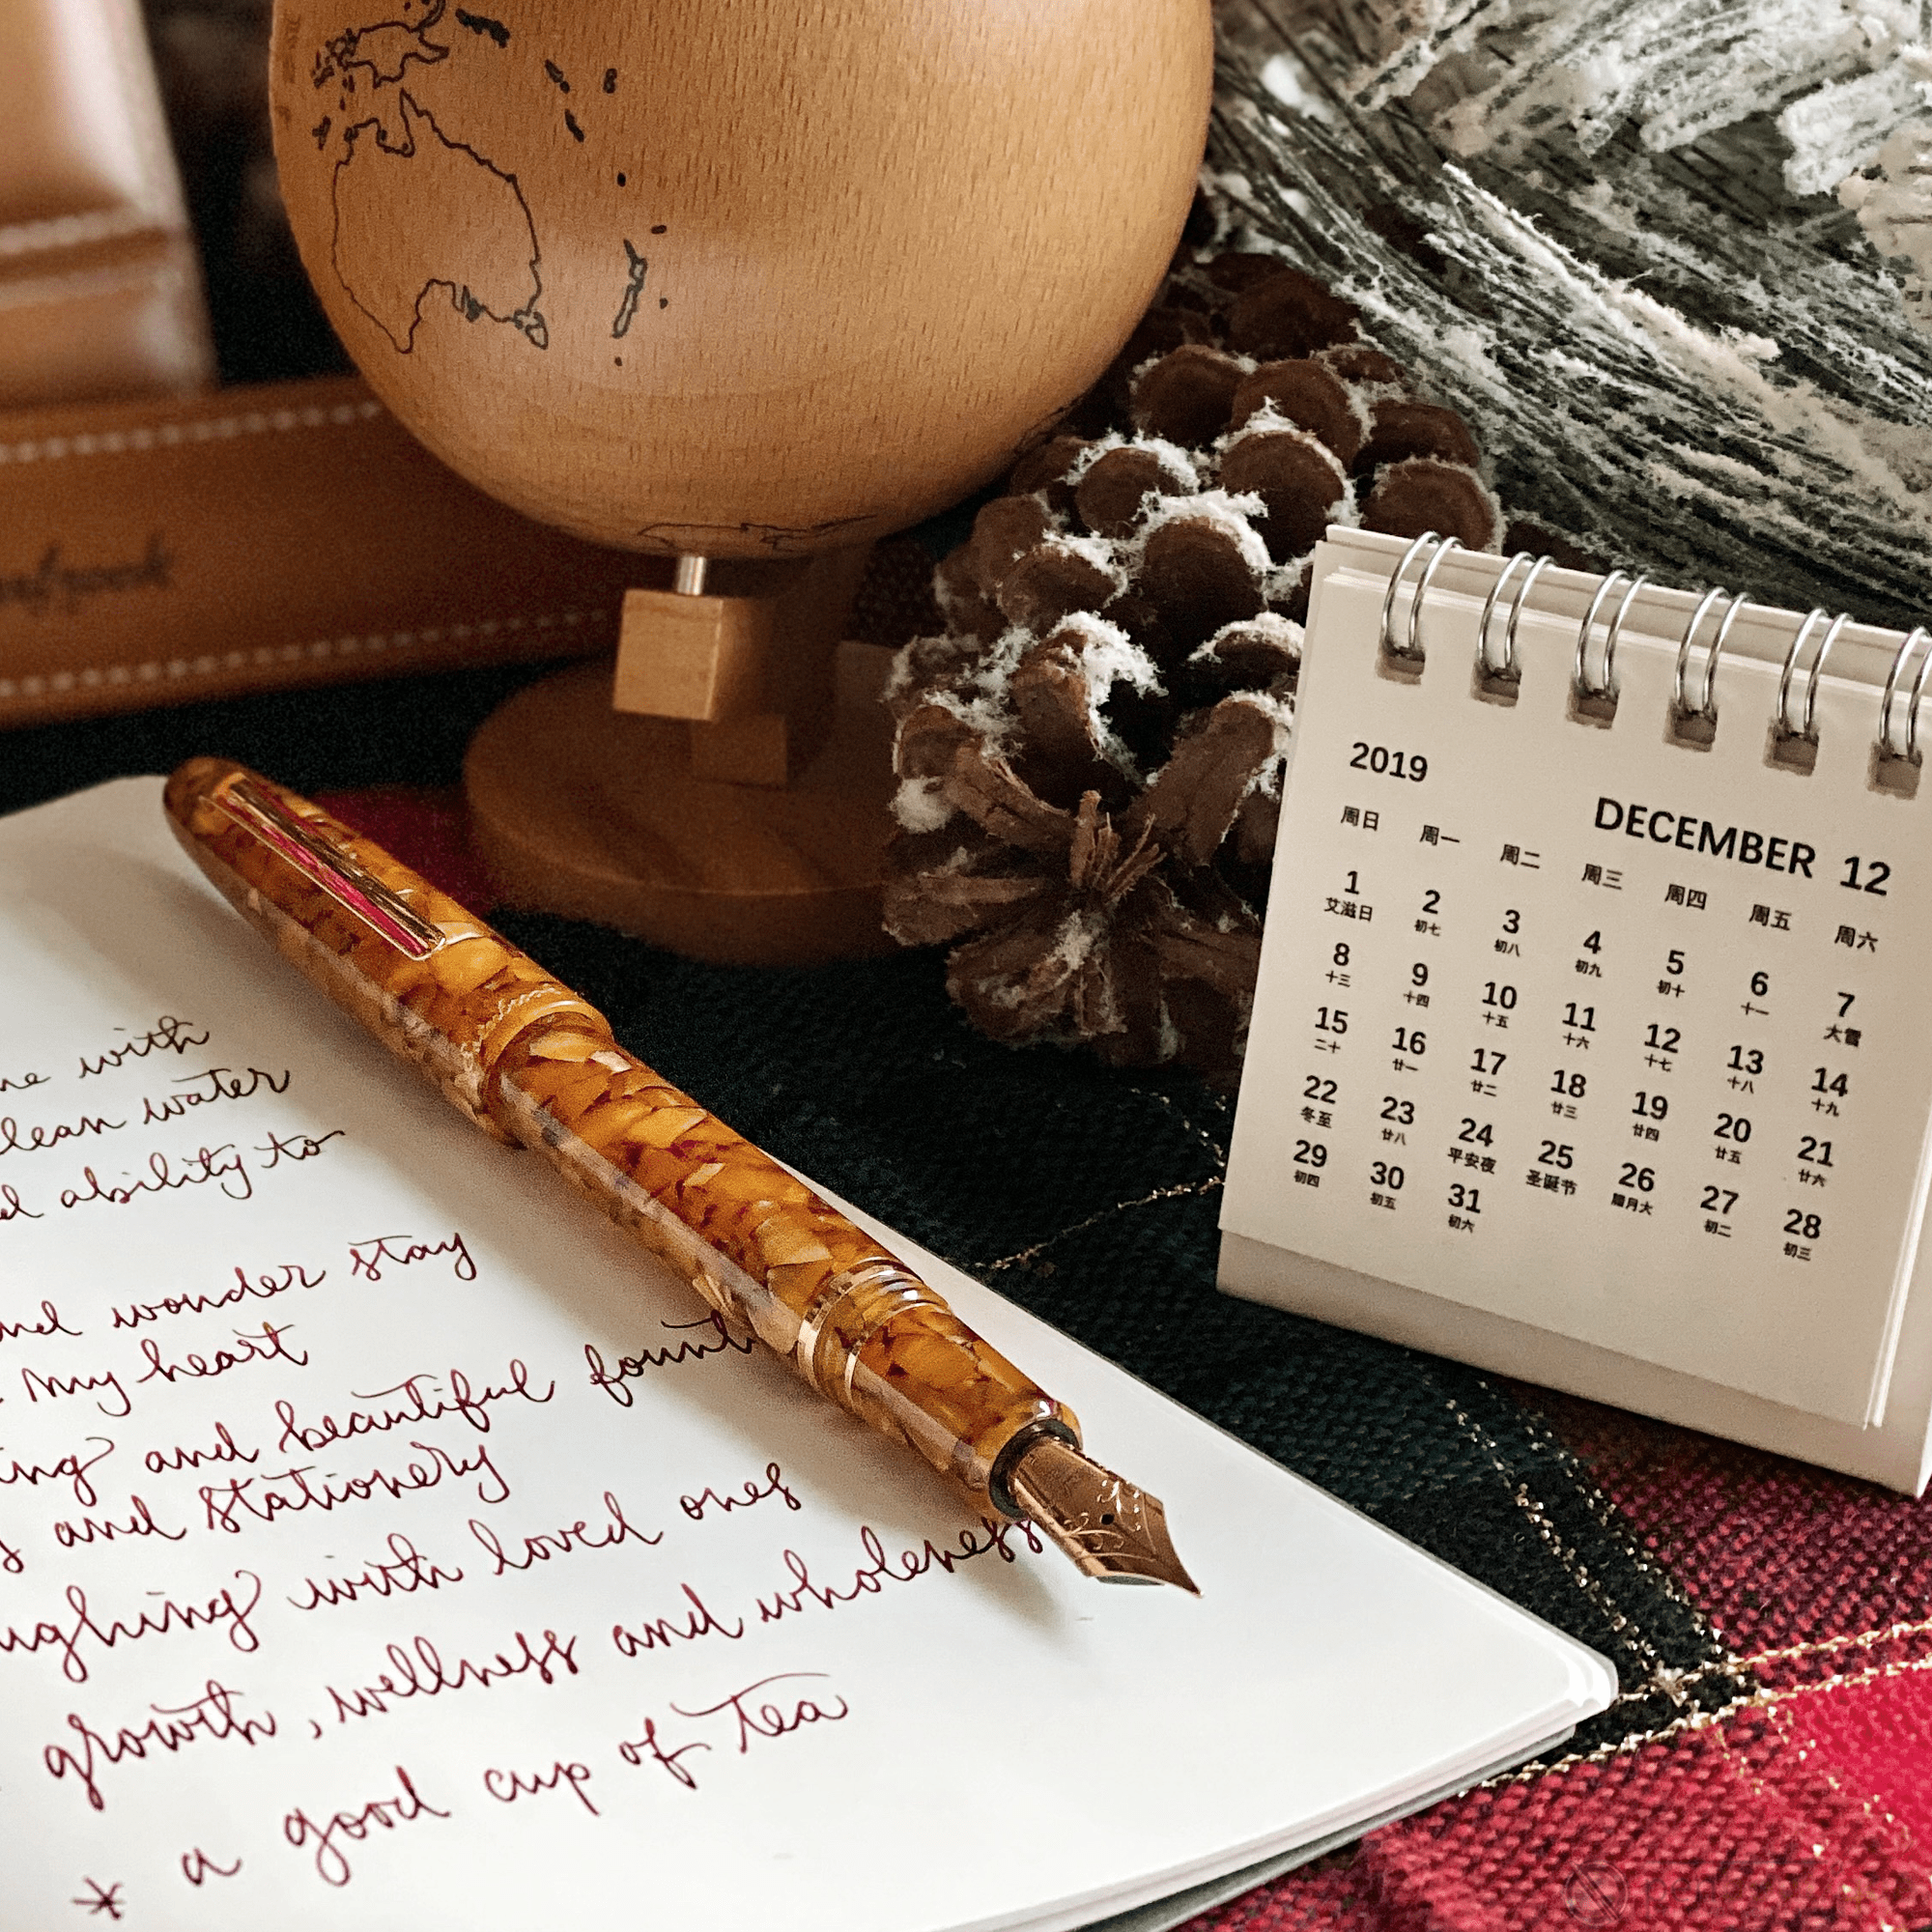 2019
DECEMBER 12
周日 周一 周二 周三 周四 周五 周六
1 2 3 4 5 6 7
艾滋日 初七 初八 初九 初十 十一 大雪
8 9 10 11 12 13 14
十三 十四 十五 十六 十七 十八 十九
15 16 17 18 19 20 21
二十 廿一 廿二 廿三 廿四 廿五 廿六
22 23 24 25 26 27 28
冬至 廿八 平安夜 圣诞节 腊月大 初二 初三
29 30 31
初四 初五 初六
with
clean water
ability to
and wonder stay
my heart
and beautiful
and stationery
with loved ones
growth, wellness and wholeness
* a good cup of tea